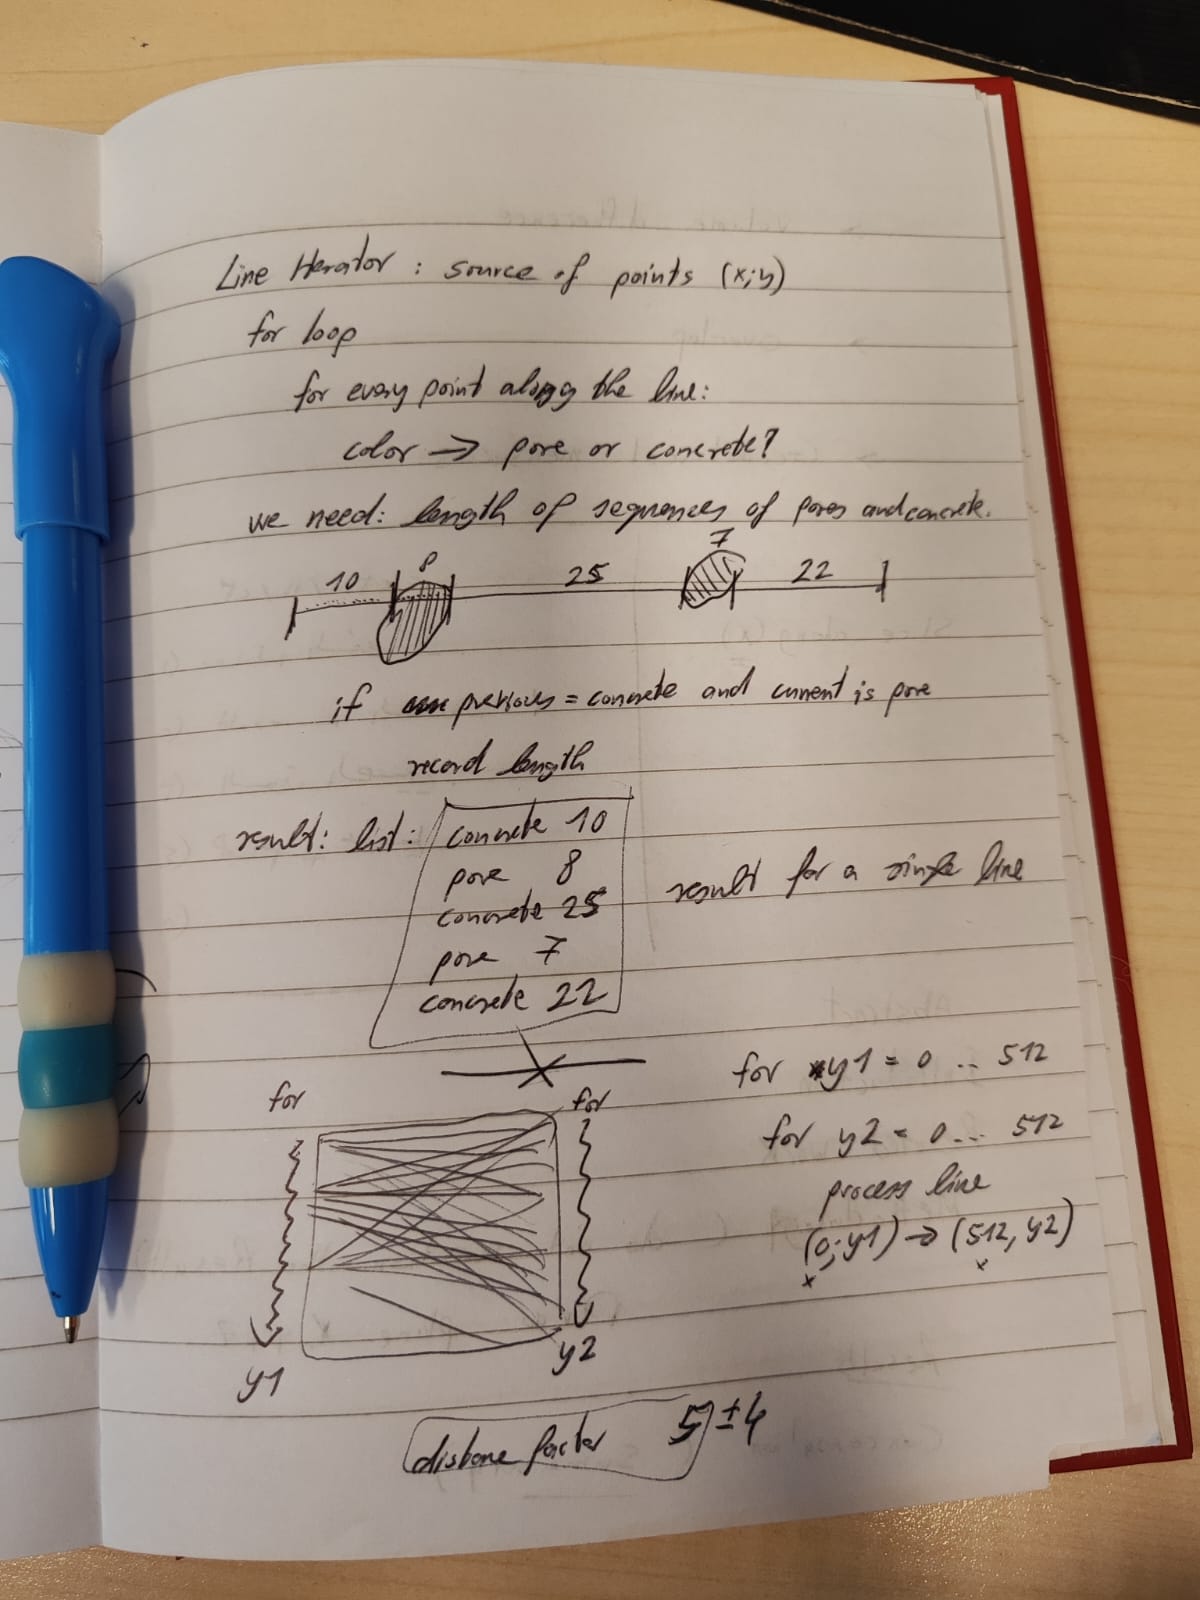 Line Iterator : source of points (x;y)
for loop
for every point along the line:
color → pore or concrete?
we need: length of sequences of pores and concrete.
10 8 25 7 22
if previous = concrete and current is pore
record length
result: list: concrete 10
pore 8
concrete 25
pore 7
concrete 22
result for a single line
for y1 = 0 .. 512
for y2 = 0... 512
process line
(0;y1) → (512, y2)
x x
for for
y1 y2
factor 5 ± 4